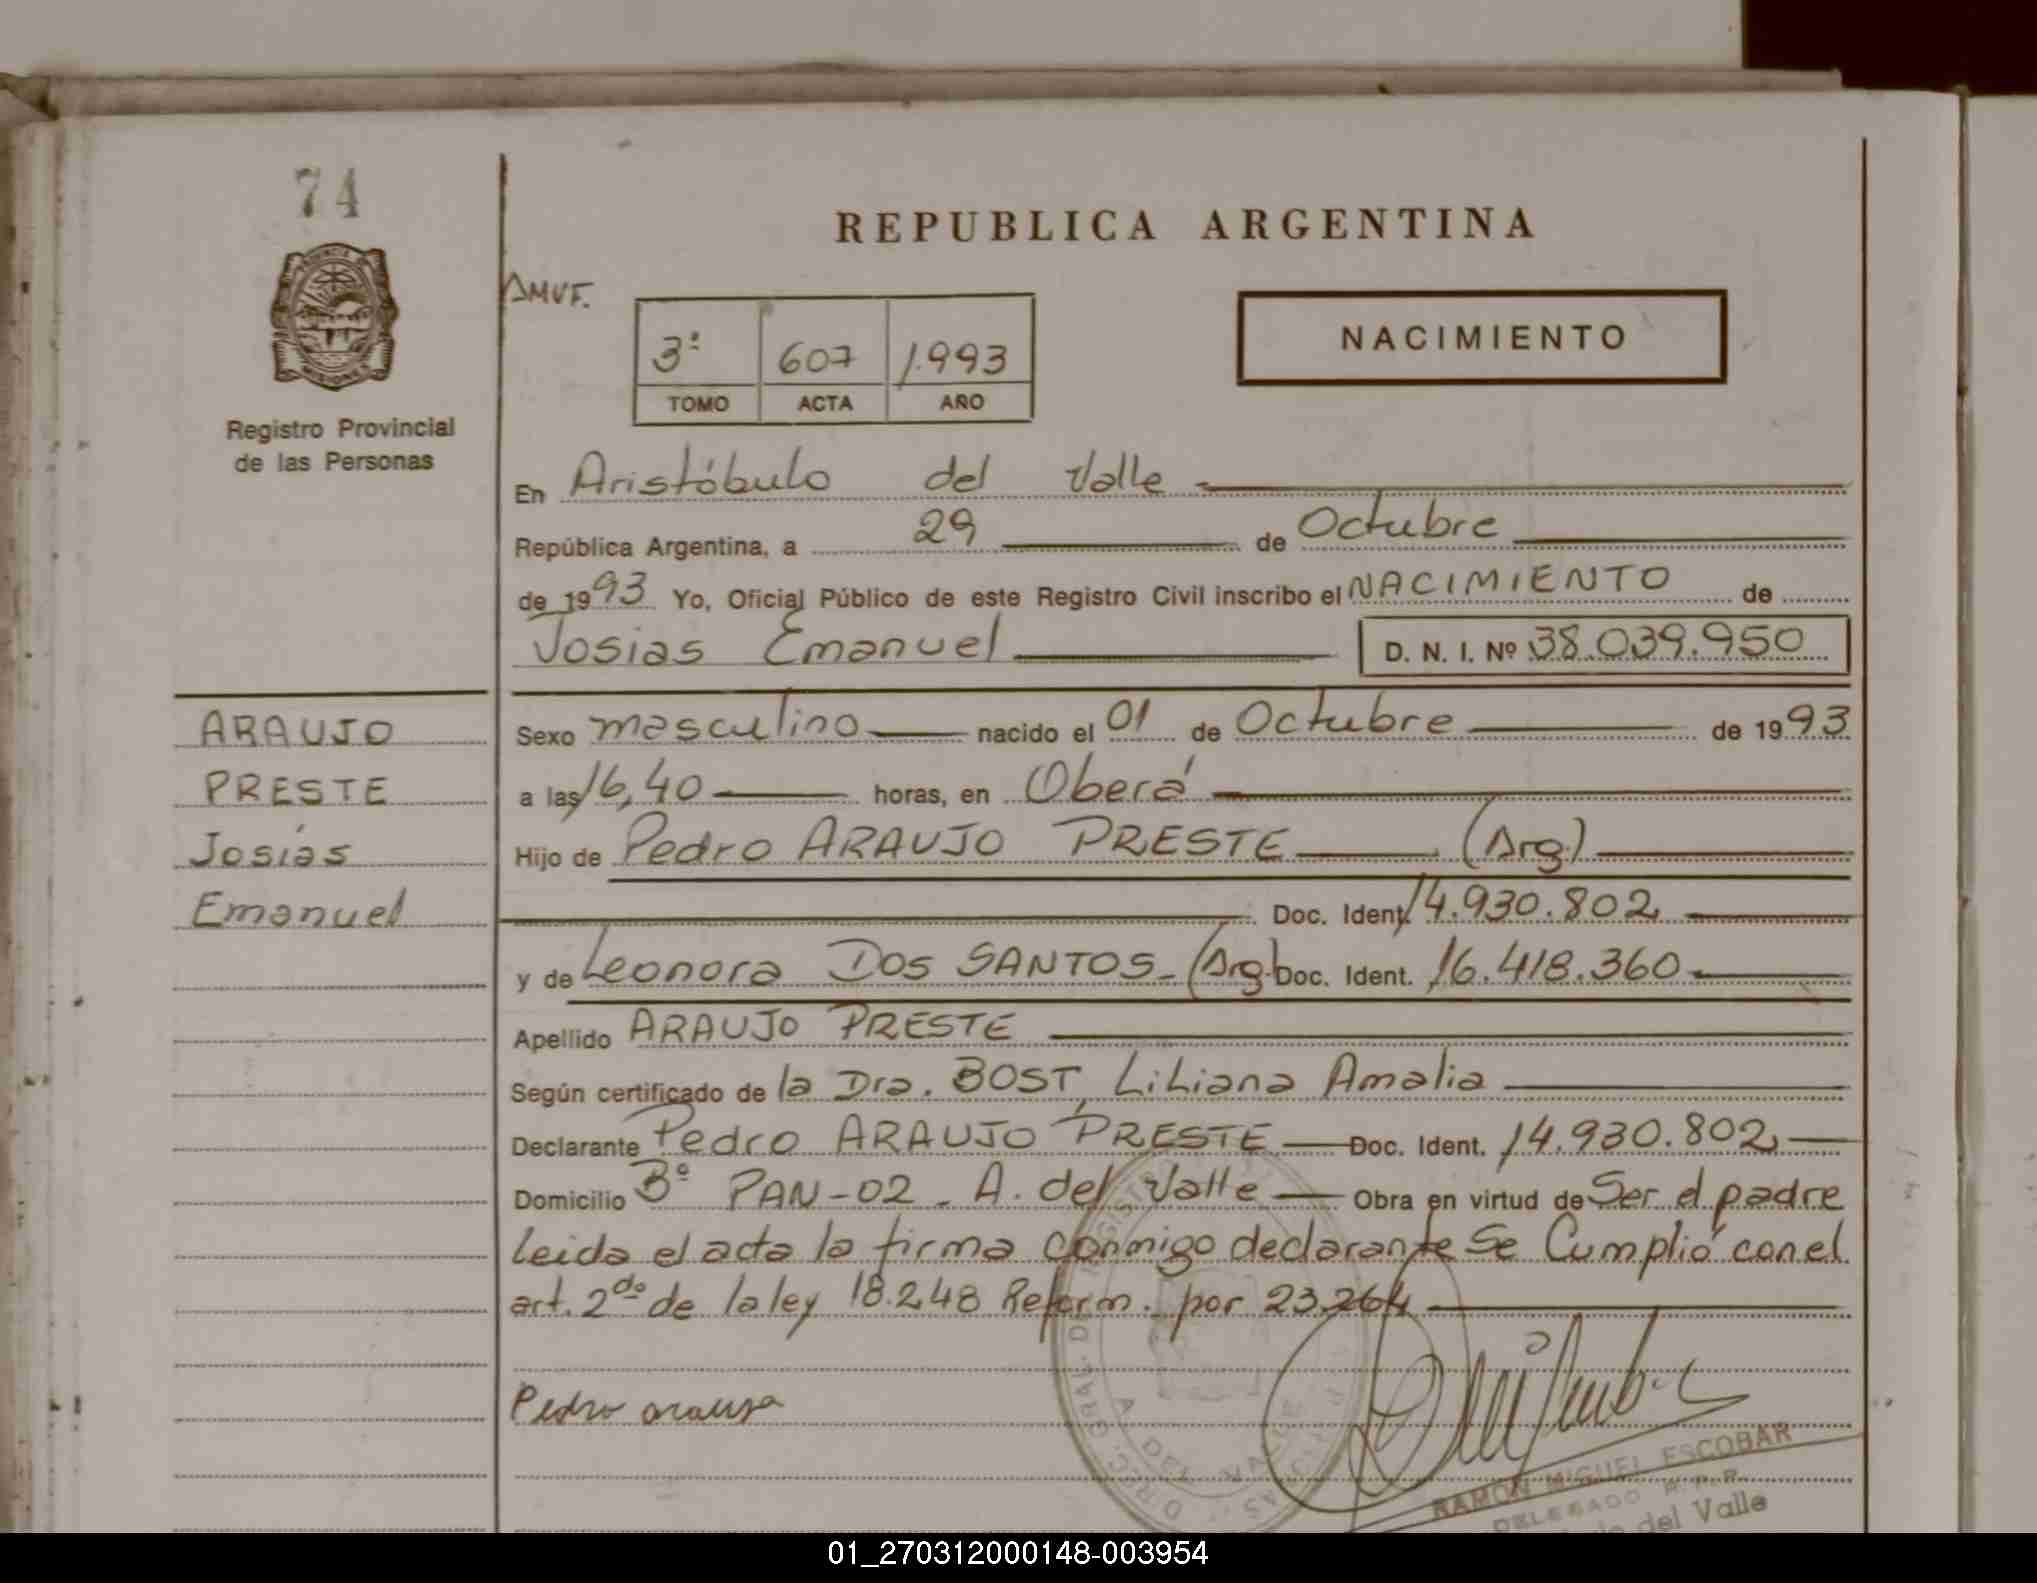 74
REPUBLICA ARGENTINA
AMVF.
NACIMIENTO
3º 607 1.993
TOMO ACTA AÑO
Registro Provincial
de las Personas
En Aristóbulo del Valle
República Argentina, a 29 de Octubre
de 1993 Yo, Oficial Público de este Registro Civil inscribo el NACIMIENTO de
Josias Emanuel D. N. I. Nº 38.039.950
ARAUJO
PRESTE
Josías
Emanuel
Sexo masculino nacido el 01 de Octubre de 1993
a las 16,40 horas, en Oberá
Hijo de Pedro ARAUJO PRESTE (Arg.)
Doc. Ident. 14.930.802
y de Leonora DOS SANTOS - (Arg.) Doc. Ident. 16.418.360
Apellido ARAUJO PRESTE
Según certificado de la Dra. BOST, Liliana Amalia
Declarante Pedro ARAUJO PRESTE Doc. Ident. 14.930.802
Domicilio Bº PAN-02 - A. del Valle Obra en virtud de Ser el padre
Leida el acta la firma conmigo declarante Se Cumplió con el
art. 2do de la ley 18.248 Reform. por 23.264
Pedro
RAMON MIGUEL ESCOBAR
DELEGADO R.P.P.
del Valle
01_270312000148-003954